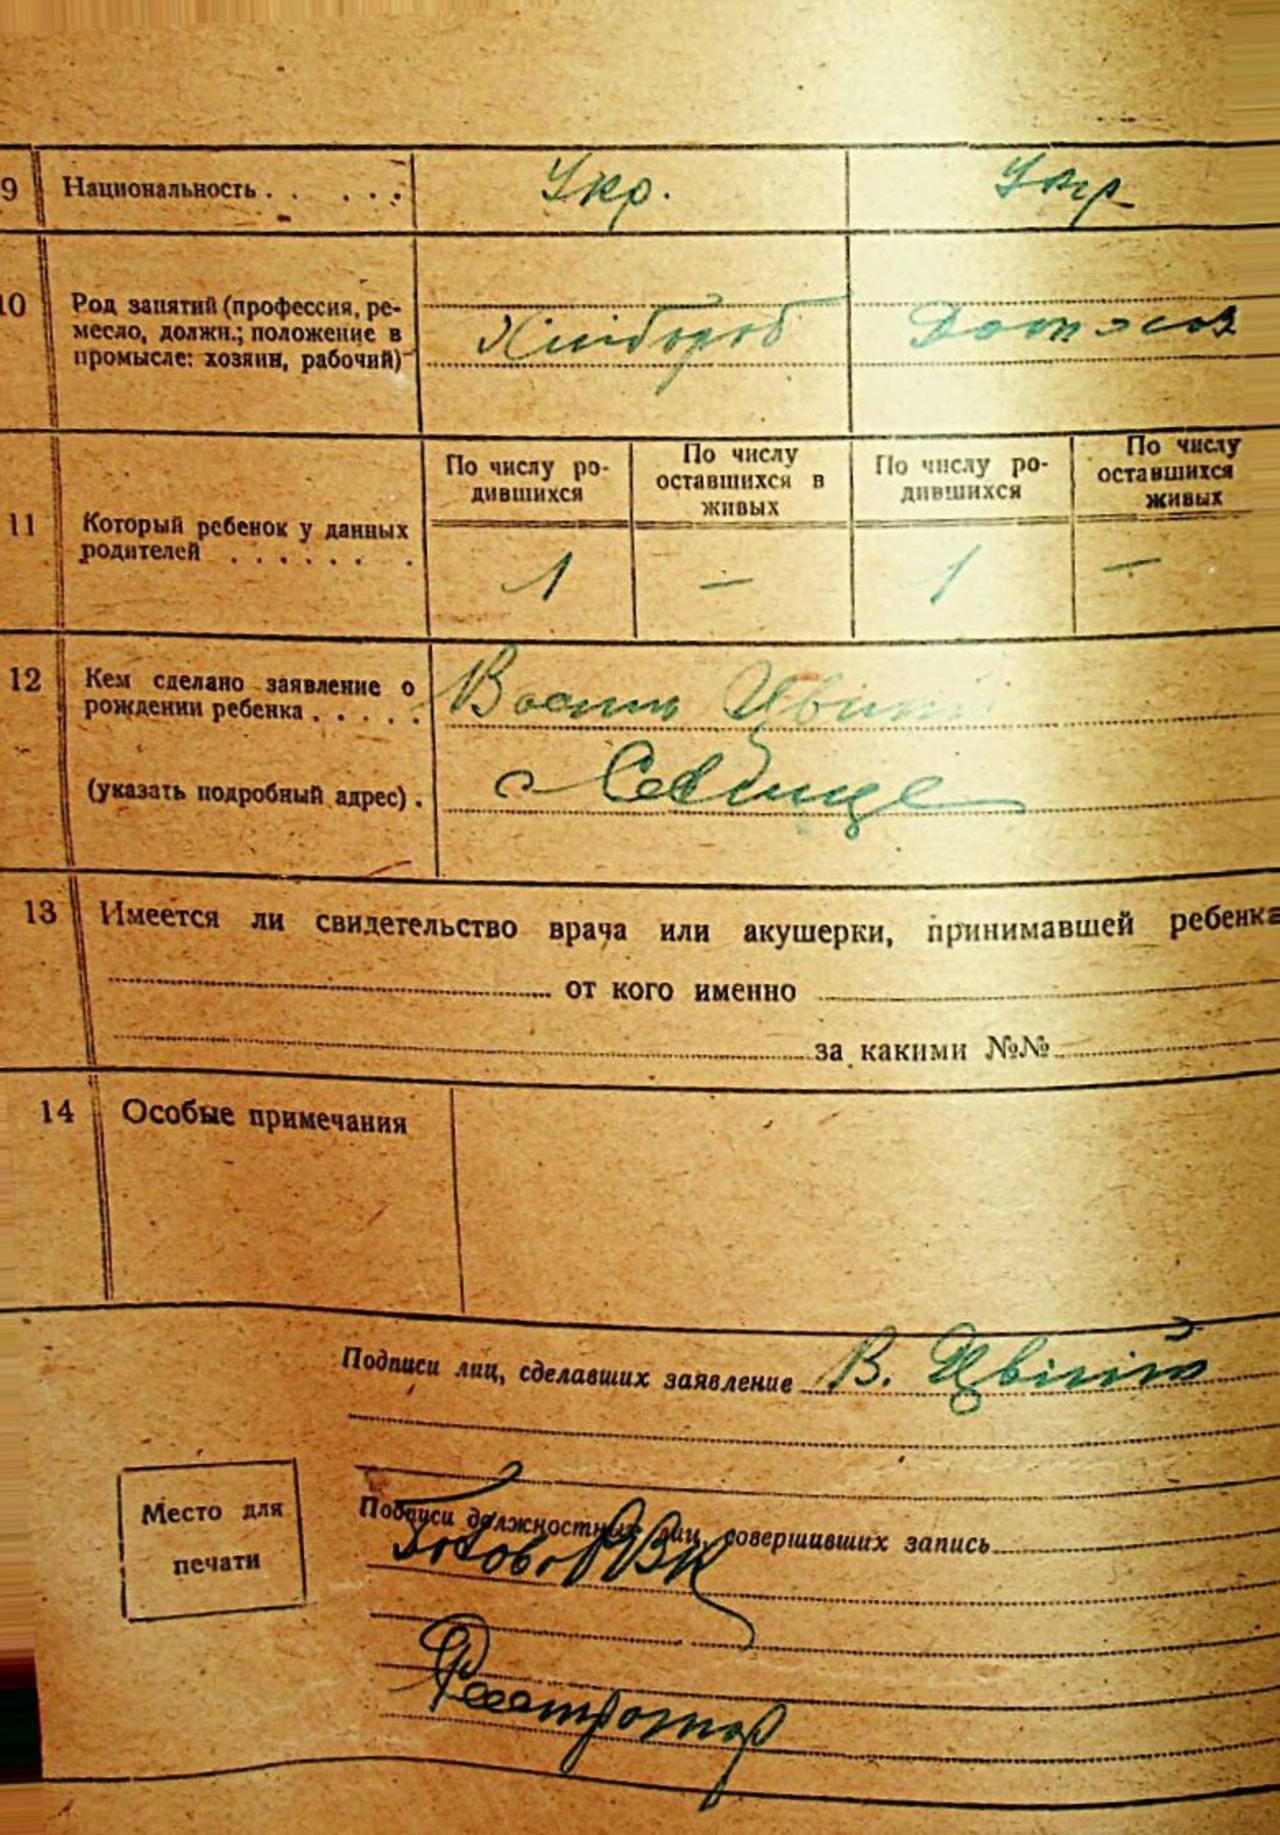 9 Национальность . . . . . . Укр. Укр
10 Род занятий (профессия, ре-
месло, должн.; положение в
промысле: хозяин, рабочий)
Хлібороб Домохоз
По числу ро-
дившихся
По числу
оставшихся в
живых
По числу ро-
дившихся
По числу
оставшихся
живых
11 Который ребенок у данных
родителей . . . . . . .
1 — 1 —
12 Кем сделано заявление о
рождении ребенка . . . . .
(указать подробный адрес) .
Цвіт
с
13 Имеется ли свидетельство врача или акушерки, принимавшей ребенка
от кого именно
за какими №№
14 Особые примечания
Подписи лиц, сделавших заявление В.
Место для
печати
Подписи должностных лиц, совершивших запись
Голова РВК